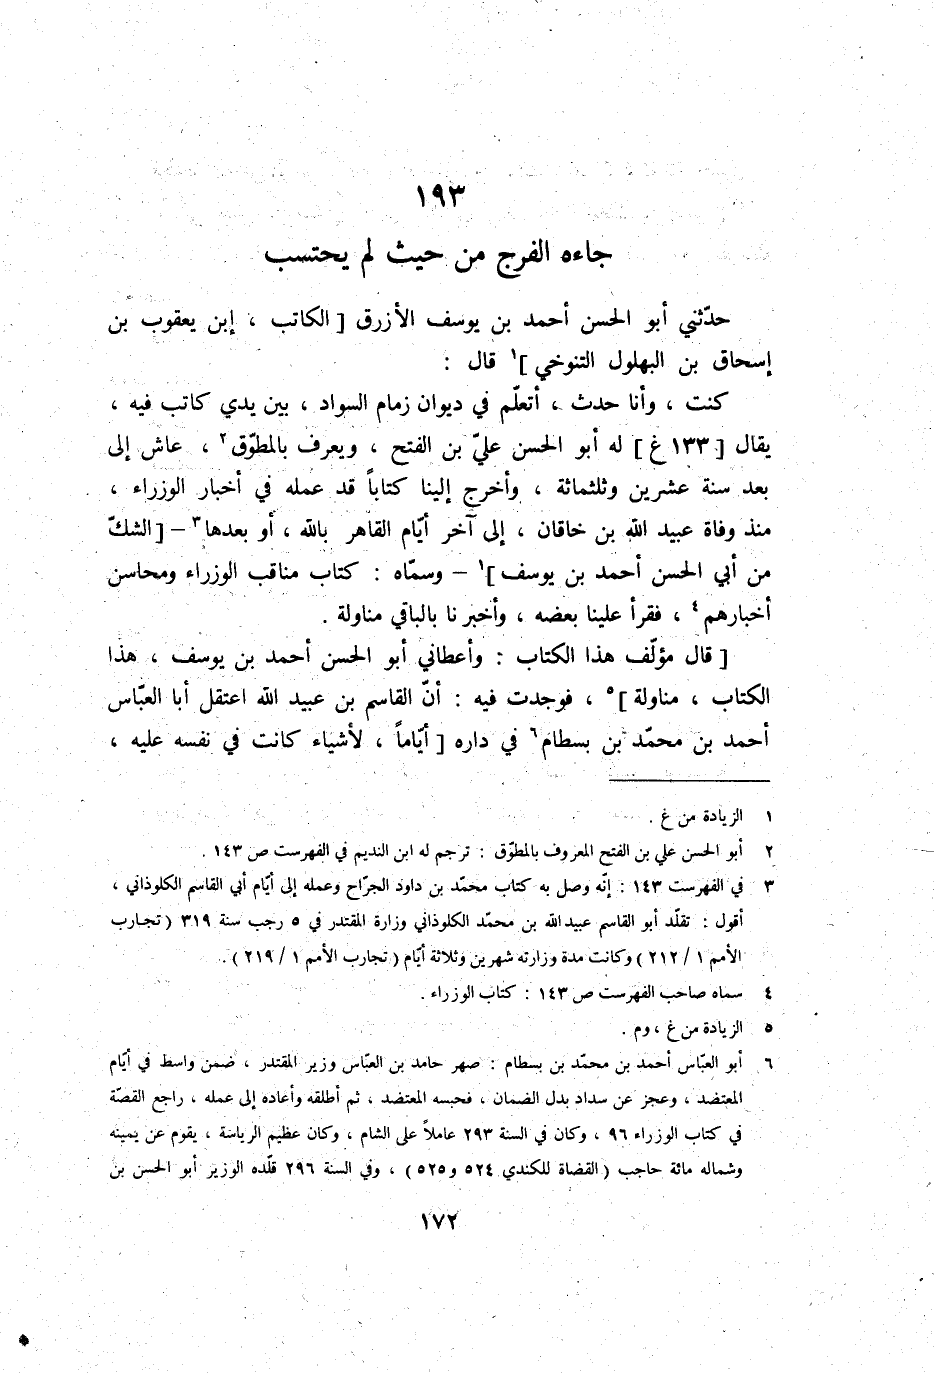 ١٩٣
جاءه الفرج من حيث لم يحتسب
حدّثني أبو الحسن أحمد بن يوسف الأزرق [ الكاتب ، إبن يعقوب بن
إسحاق بن البهلول التنوخي ]١ قال :
كنت ، وأنا حدث ، أتعلّم في ديوان زمام السواد ، بين يدي كاتب فيه ،
يقال [ ١٣٣ غ ] له أبو الحسن عليّ بن الفتح ، ويعرف بالمطوّق٢ ، عاش إلى
بعد سنة عشرين وثلثمائة ، وأخرج إلينا كتاباً قد عمله في أخبار الوزراء ،
منذ وفاة عبيد الله بن خاقان ، إلى آخر أيّام القاهر بالله ، أو بعدها٣ – [ الشكّ
من أبي الحسن أحمد بن يوسف ]١ – وسمّاه : كتاب مناقب الوزراء ومحاسن
أخبارهم٤ ، فقرأ علينا بعضه ، وأخبرنا بالباقي مناولة .
[ قال مؤلّف هذا الكتاب : وأعطاني أبو الحسن أحمد بن يوسف ، هذا
الكتاب ، مناولة ]٥ ، فوجدت فيه : أنّ القاسم بن عبيد الله اعتقل أبا العبّاس
أحمد بن محمّد بن بسطام٦ في داره [ أيّاماً ، لأشياء كانت في نفسه عليه ،
١ الزيادة من غ .
٢ أبو الحسن علي بن الفتح المعروف بالمطوّق : ترجم له ابن النديم في الفهرست ص ١٤٣ .
٣ في الفهرست ١٤٣ : إنّه وصل به كتاب محمّد بن داود الجرّاح وعمله إلى أيّام أبي القاسم الكلوذاني ،
أقول : تقلّد أبو القاسم عبيد الله بن محمّد الكلوذاني وزارة المقتدر في ٥ رجب سنة ٣١٩ ( تجارب
الأمم ١ / ٢١٢ ) وكانت مدة وزارته شهرين وثلاثة أيّام ( تجارب الأمم ١ / ٢١٩ ) .
٤ سماه صاحب الفهرست ص ١٤٣ : كتاب الوزراء .
٥ الزيادة من غ ، وم .
٦ أبو العبّاس أحمد بن محمّد بن بسطام : صهر حامد بن العبّاس وزير المقتدر ، ضمن واسط في أيّام
المعتضد ، وعجز عن سداد بدل الضمان ، فحبسه المعتضد ، ثم أطلقه وأعاده إلى عمله ، راجع القصّة
في كتاب الوزراء ٩٦ ، وكان في السنة ٢٩٣ عاملاً على الشام ، وكان عظيم الرياسة ، يقوم عن يمينه
وشماله مائة حاجب ( القضاة للكندي ٥٢٤ و ٥٢٥ ) ، وفي السنة ٢٩٦ قلّده الوزير أبو الحسن بن
١٧٢